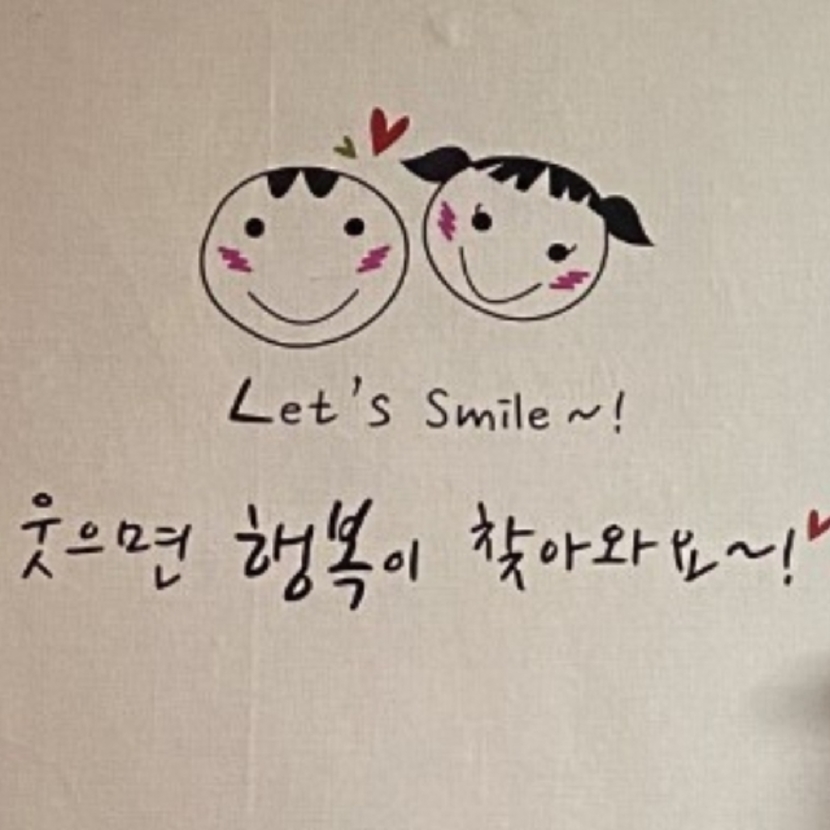 Let's Smile~!
웃으면 행복이 찾아와요~!